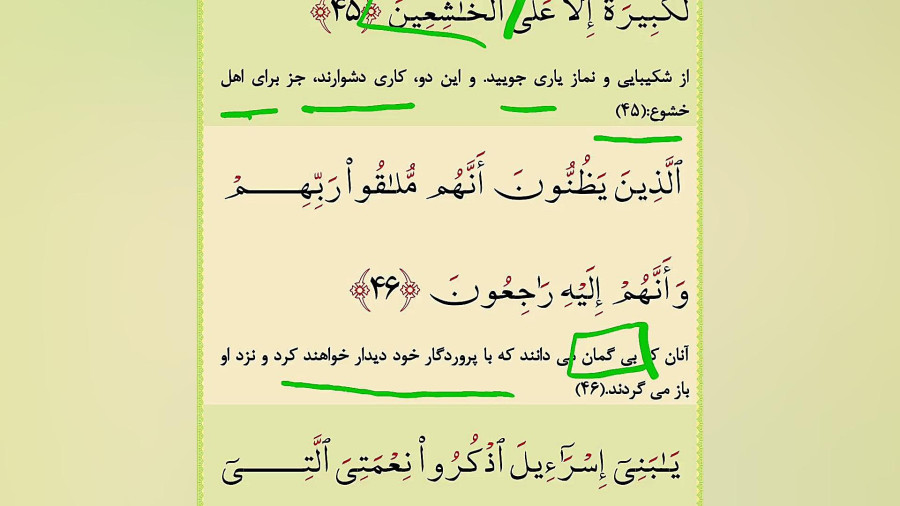 لَكَبِيرَةٌ إِلَّا عَلَى ٱلۡخَٰشِعِينَ ﴿۴۵﴾
از شکیبایی و نماز یاری جویید. و این دو، کاری دشوارند، جز برای اهل
خشوع:(۴۵)
ٱلَّذِينَ يَظُنُّونَ أَنَّهُم مُّلَٰقُواْ رَبِّهِمۡ
وَأَنَّهُمۡ إِلَيۡهِ رَٰجِعُونَ ﴿۴۶﴾
آنان که بی گمان می دانند که با پروردگار خود دیدار خواهند کرد و نزد او
باز می گردند.(۴۶)
يَٰبَنِيٓ إِسۡرَٰٓءِيلَ ٱذۡكُرُواْ نِعۡمَتِيَ ٱلَّتِيٓ